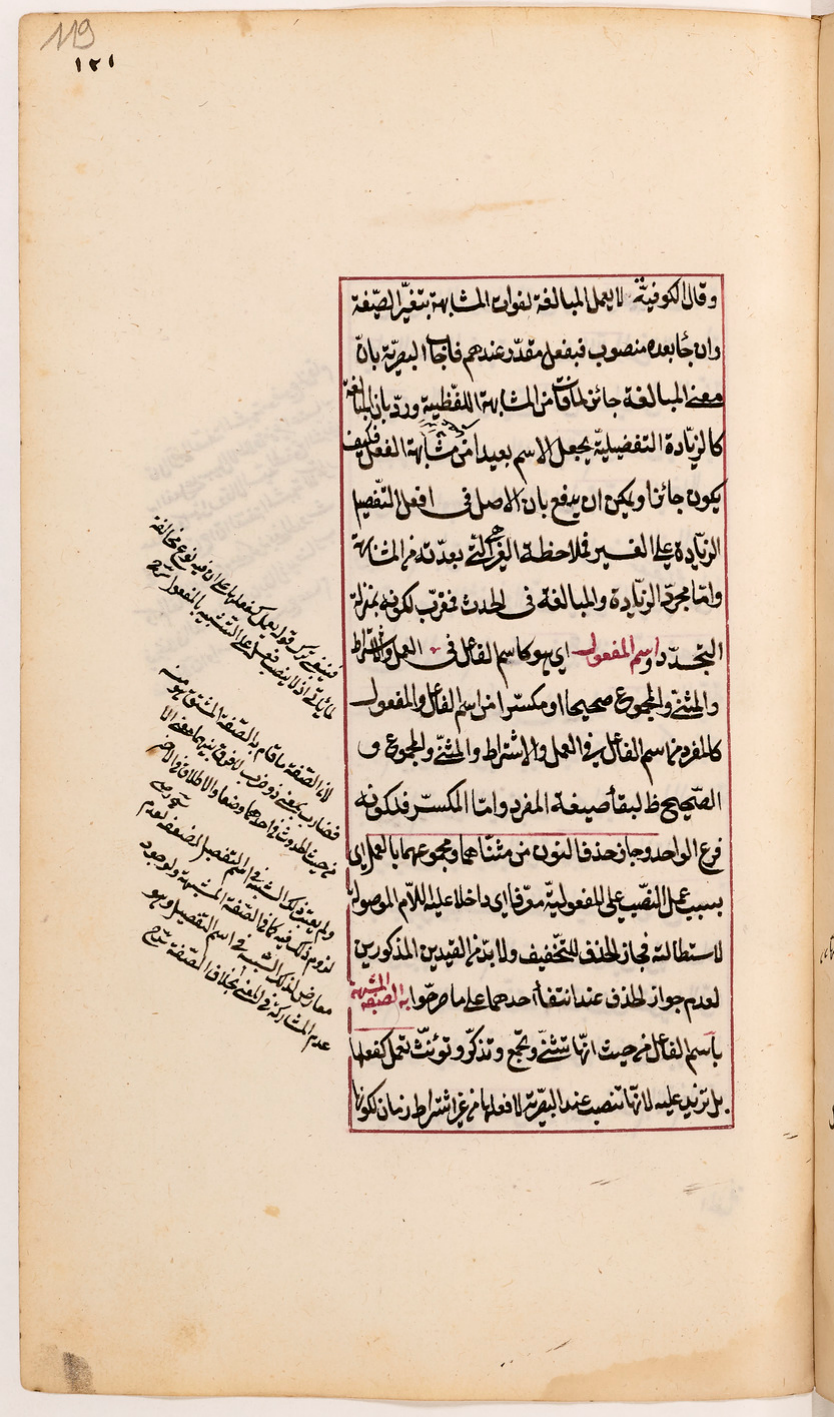 119
١٢١
وقال الكوفيّة لا يعمل المبالغة لفوات المشابهة بتغيّر الصّيغة
وان جٓا بعده منصوب فبفعل مقدّر عندهم فاجاب البصريّة بانّ
معنى المبالغة جائز لما فات من المشابهة اللفظية وردّ بان المبالغة
كالزيّادة التفضيليّة يجعل الاسم بعيدا من مشابهة الفعل فكيف
يكون جائزا ويمكن ان يدفع بان الاصل فى افعل التّفصيل
الزيّادة على الغير فملاحظة الغير هى التى بعدّته من المشابهة
وامّا مجرّد الزيّادة والمبالغة فى الحدث فمقرّب لكونه بمنزلة
التجدّد واسم المفعول اى هو كاسم الفاعل فى العمل والاشتراط
والمثنّى والمجموع صحيحا او مكسّرا من اسم الفاعل والمفعول
كالمفرد من اسم الفاعل فى العمل والاشتراط والمثنّى والمجموع و
الصّحيح ظ لبقاء صيغة المفرد وامّا المكسّر فلكونه
فرع الواحد وجاز حذف النون من مثنّاهما ومجموعهما بالعمل اى
بسبب عمل النّصب على المفعوليّة معرّفا اى داخلا عليه اللاّم الموصولة
لاستطالته فجاز الحذف للتّخفيف ولا بدّ من القيدين المذكورين
لعدم جواز الحذف عند انتفاء احدهما على ما صرّحوا به الصّفة المشبهة
باسم الفاعل من حيث انّها تثنّى وتجمع وتذكّر وتؤنّث تعمل كفعلها
بل تزيد عليه لانّها تنصب عند البصريّة لا فعلها من غير اشتراط زمان لكونها
فينبغى ترك قوله يعمل كفعلها على ان فيه نوع مخالفة
لما يأتى اذ لا ينصب فعل على التشبيه بالمفعول
لان الصّفة ما قام به الصّفة المشتقّ هو منه
فضارب بمعنى ذو ضرب لا فرق بينهما معنى الا
من حيث الحدوث فى احدهما وضعا والاطلاق فى الآخر
ولم يعتبر ذلك الشبه فى اسم التفضيل لضعفه لعدم
لزوم ذلك فيه كما فى الصّفة المشبهة ولوجود
معارض لذلك الشبه فى اسم التفضيل وهو
عدم المشاركة فى المعنى بخلاف الصّفة